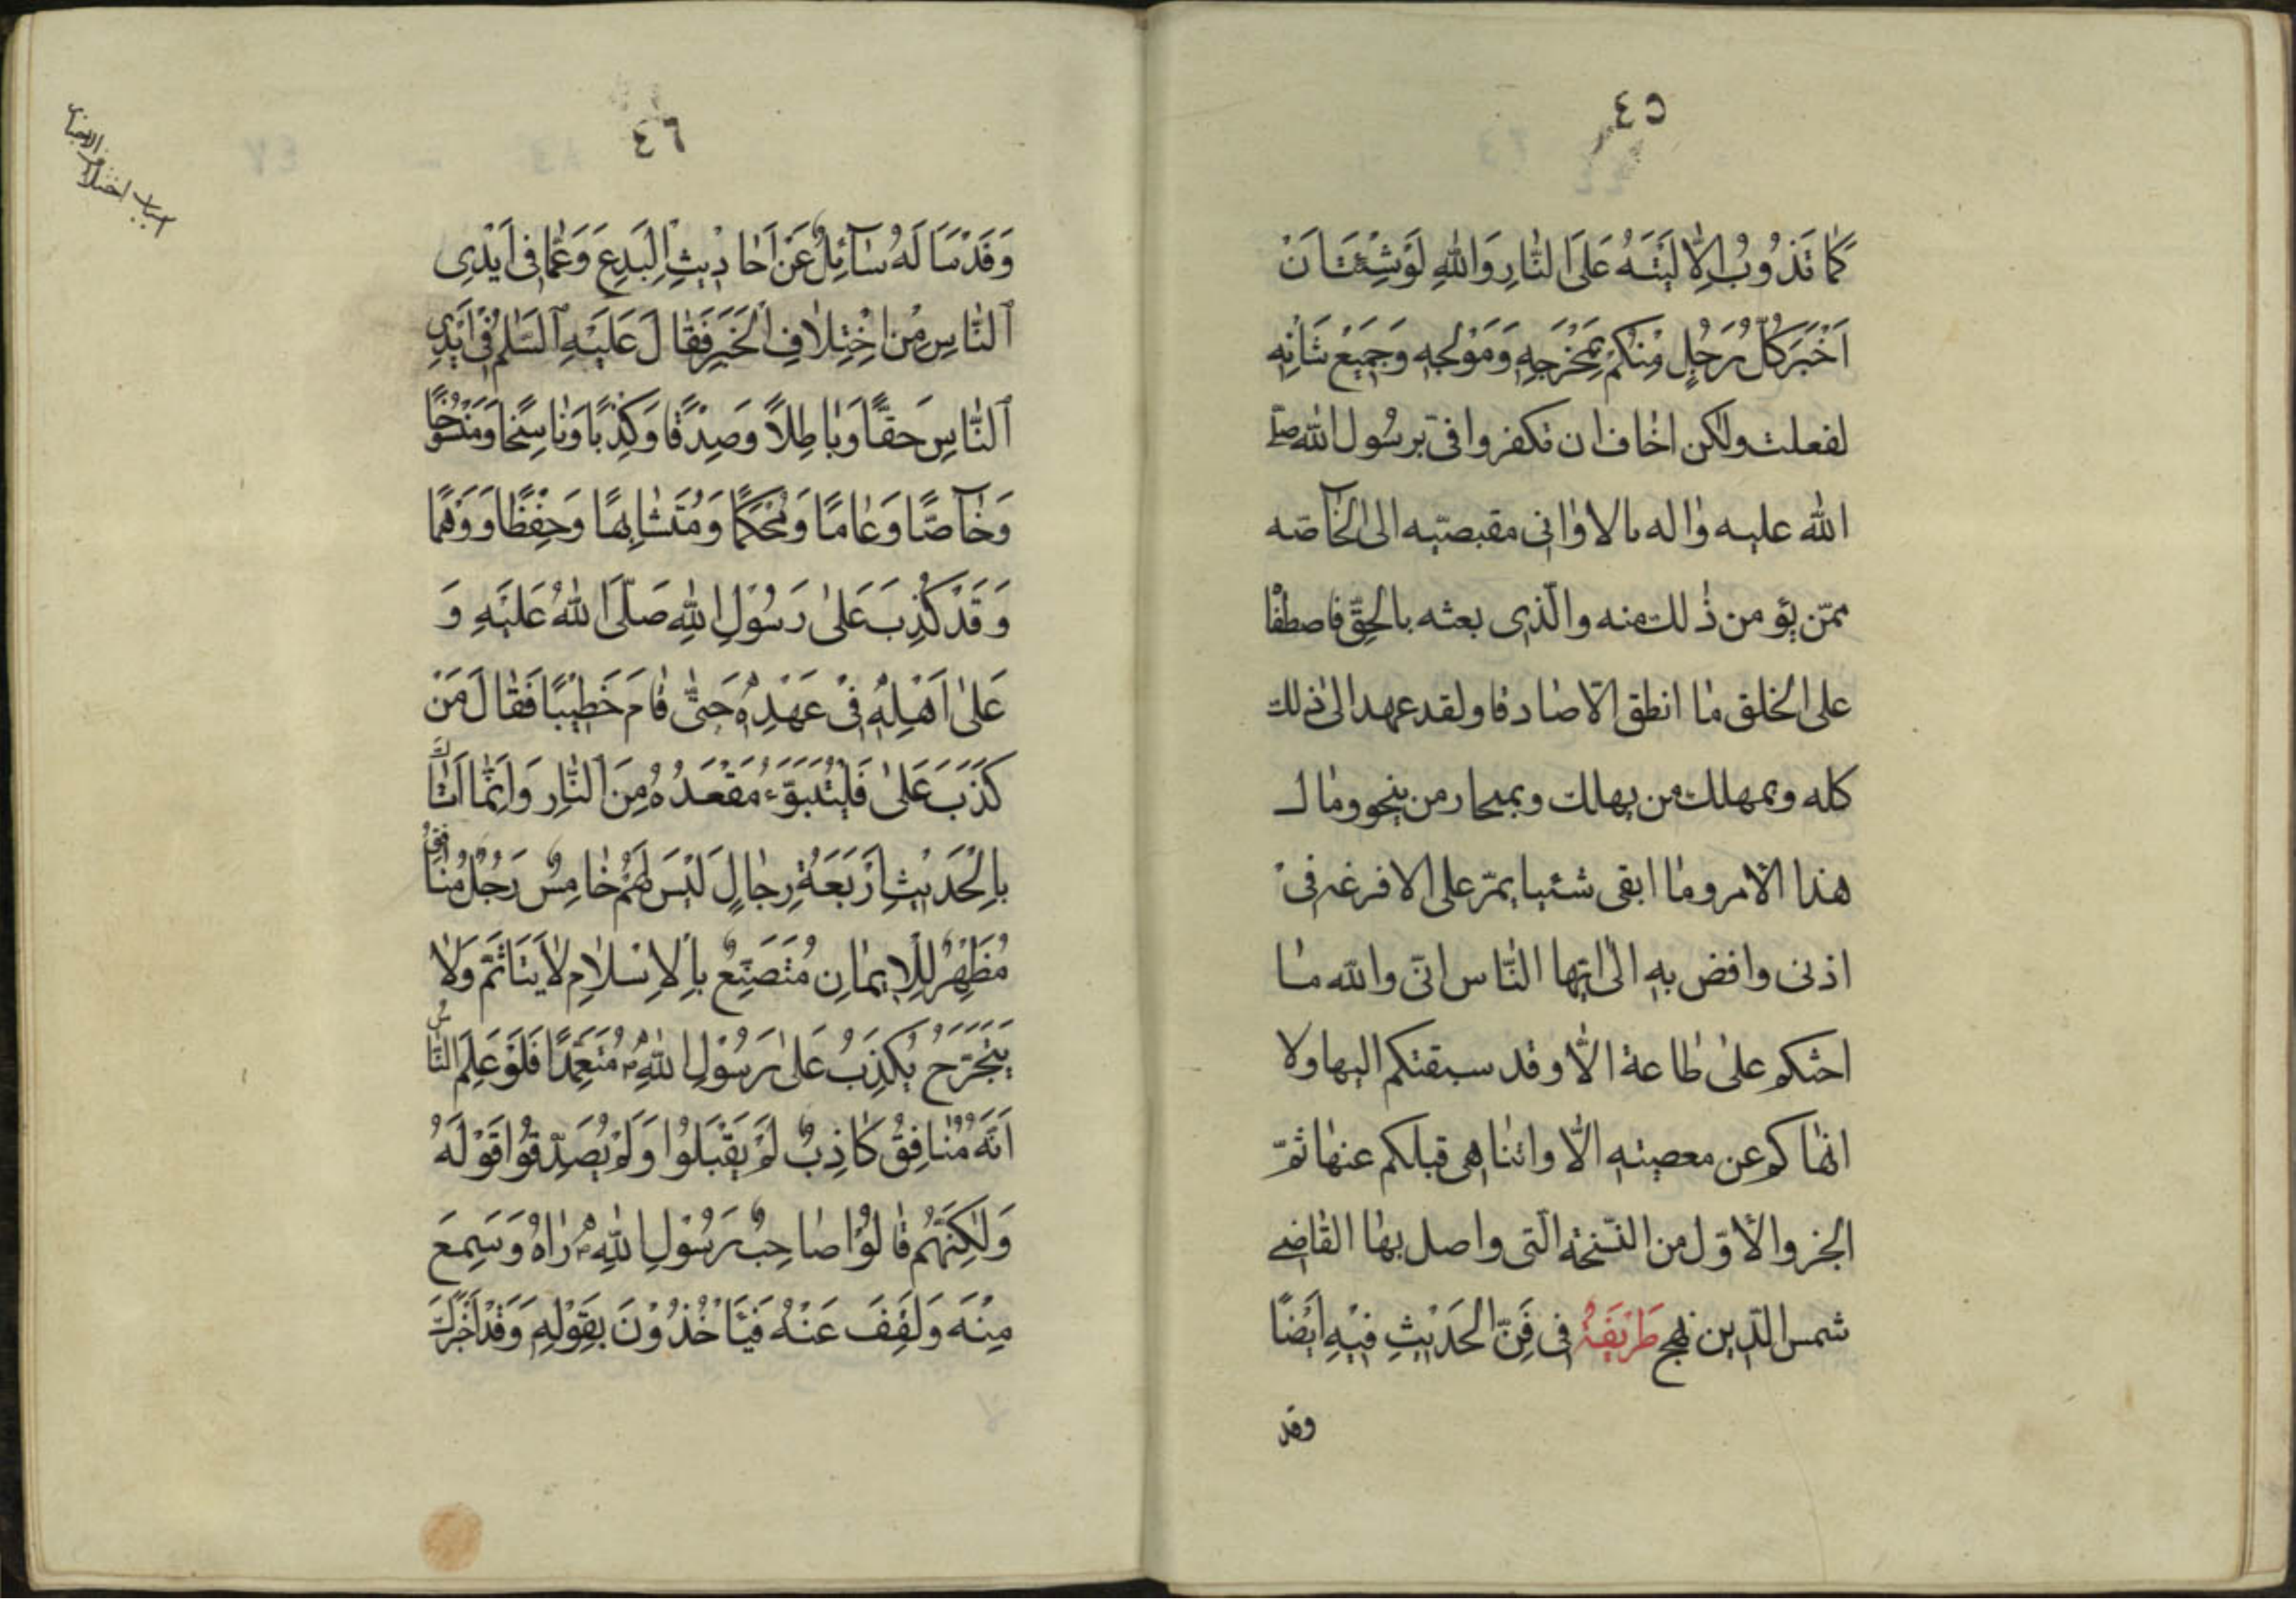 ٤٥
كَما تَذُوبُ الِالْيَتَهُ عَلَى النّٰارِ وَاللّٰهِ لَوْ شِئْتُ اَنْ
اَخْبَرَ كُلُّ رَجُلٍ مِنْكُمْ بِمَخْرَجِهِ وَمَوْلِجِهِ وَجَمِيْعِ شَانِهِ
لفعلت ولكن اخاف ان تكفروا فىّ برسول اللّٰه صلّى
اللّٰه عليه واله الا وانى مقبصتيه الى الخآصّه
ممّن يؤمن ذٰلك منه والّذى بعثه بالحقّ فاصطفا
على الخلق ما انطق الّا صادقا ولقد عهد الىّ ذلك
كله وبمهلك من يهلك وبمنجا رمن ينجو ومال
هذا الامر وما ابقى شئيا يمرّ على الا فرغه فى
اذنى وافض به الى ايّها النّاس انّى واللّه ما
احثكم على طاعة الّا وقد سبقتكم اليها ولا
انهاكم عن معصيته الّا واتناهى قبلكم عنها ثمّ
الجزو الأوّل من النّسخة الّتى واصل بها القاضى
شمس الدّين نهج طَرِيْقَةُ فى فَنِّ الْحَدَيْثِ فِيْهِ اَيْضًا
وقد
٤٦
وَقَدْ سَاَلَهُ سَآئِلٌ عَنْ اَحَادِيثِ الْبِدَعِ وَعَمَّا فِى اَيْدِى
النّٰاسِ مِنْ اِخْتِلَافِ الْخَبَرِ فَقٰالَ عَلَيْهِ السَّلٰمُ فِىْ اَيْدِى
النّٰاسِ حَقًّا وَبٰاطِلاً وَصِدْقًا وَكِذْبًا وَنٰاسِخًا وَمَنْسُوخًا
وَخٰآصًّا وَعٰامًا وَمُحْكَمًا وَمُتَشٰابِهًا وَحِفْظًا وَوَهْمًا
وَقَدْ كُذِبَ عَلىٰ رَسُوْلِ اللّٰهِ صَلَّى اللّٰهُ عَلَيْهِ وَ
عَلىٰ اَهْلِهِ فِىْ عَهْدِهِ حَتّٰى قٰامَ خَطِيْبًا فَقٰالَ مَنْ
كَذَبَ عَلىٰ فَلْيَتَبَوَّءْ مَقْعَدُهُ مِنَ النّٰارِ وَاِنَّمٰا اَتَاكَ
بِالْحَدَيْثِ اَرْبَعَةُ رِجٰالٍ لَيْسَ لَهُمْ خٰامِسٌ رَجُلٌ مُنٰافِقٌ
مُظْهِرٌ لِلْاِيمٰانِ مُتَصَنِّعٌ بِالْاِسْلاٰمِ لاٰ يَتَاَثَّمُ وَلاٰ
يَتَحَرَّجُ يَكْذِبُ عَلىٰ رَسُوْلِ اللّٰهِ مُتَعَمِّدًا فَلَوْ عَلِمَ النّٰاسُ
اَنَّهُ مُنٰافِقٌ كٰاذِبٌ لَمْ يَقْبَلُوْا وَلَمْ يُصَدِّقُوْا قَوْلَهُ
وَلٰكِنَّهُمْ قٰالُوْا صٰاحِبُ رَسُوْلِ اللّٰهِ رٰاهُ وَسَمِعَ
مِنْهَ وَلَقِفَ عَنْهُ فَيَأْخُذُوْنَ بِقَوْلِهِ وَقَدْ اَخْبَرَكَ
اسباب اختلاف